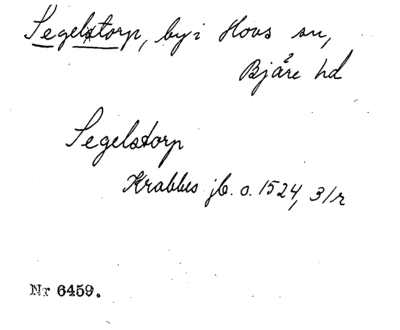 Segelstorp, by i Hovs sn,
Bjäre hd
Segelstorp
Krabbes jb. o. 1524, 31r
Nr 6459.